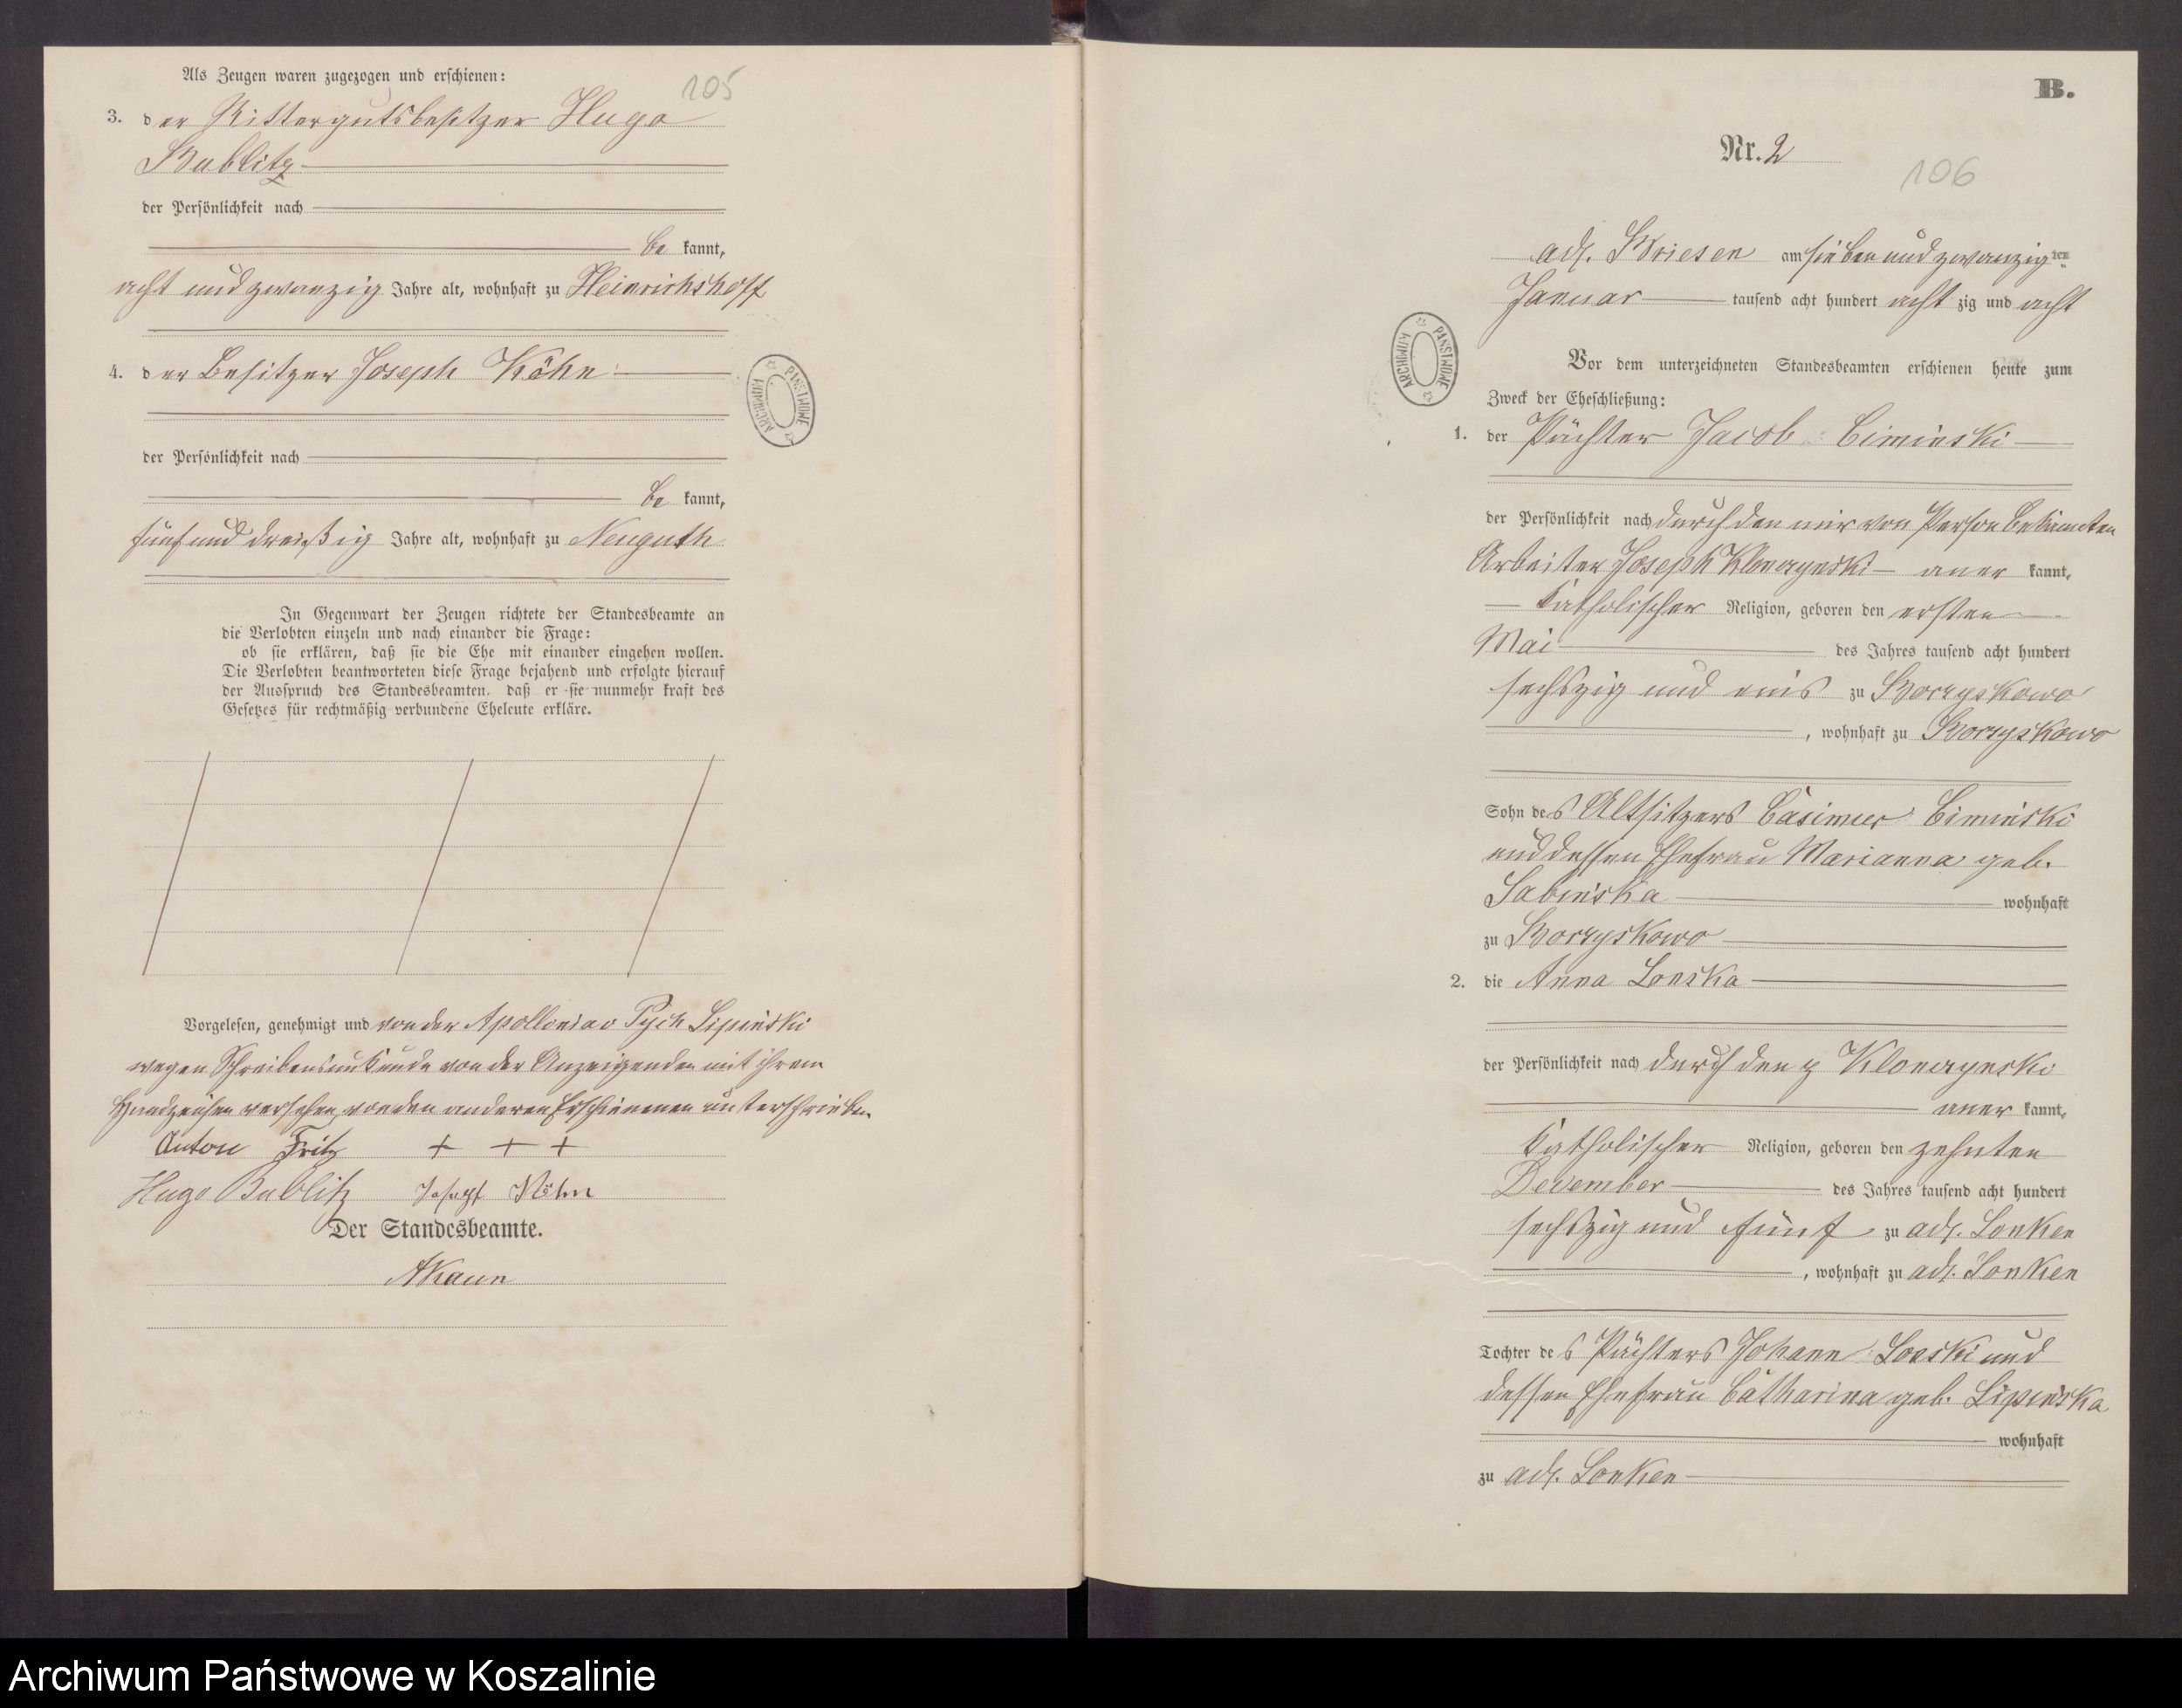 Als Zeugen waren zugezogen und erschienen:
105
3. der Rittergutsbesitzer Hugo
Bublitz
der Persönlichkeit nach
be kannt,
acht und zwanzig Jahre alt, wohnhaft zu Heinrichshoff
4. der Besitzer Joseph Köhn
der Persönlichkeit nach
be kannt,
fünf und dreißig Jahre alt, wohnhaft zu Neuguth
In Gegenwart der Zeugen richtete der Standesbeamte an
die Verlobten einzeln und nach einander die Frage:
ob sie erklären, daß sie die Ehe mit einander eingehen wollen.
Die Verlobten beantworteten diese Frage bejahend und erfolgte hierauf
der Ausspruch des Standesbeamten, daß er sie nunmehr kraft des
Gesetzes für rechtmäßig verbundene Eheleute erkläre.
Vorgelesen, genehmigt und von der Pych Lipinski
wegen Schreibensunkunde von der Anzeigenden mit ihrem
Handzeichen versehen, von den anderen Erschienenen unterschrieben.
Anton Fritz + + +
Hugo Bublitz Joseph Köhn
Der Standesbeamte.
ARCHIWUM PAŃSTWOWE
B.
Nr. 2
106
adl. Briesen am sieben und zwanzig ten
Januar tausend acht hundert acht zig und acht
Vor dem unterzeichneten Standesbeamten erschienen heute zum
Zweck der Eheschließung:
1. der Pächter Jacob Ciminski
der Persönlichkeit nach durch den mir von Person bekannten
Arbeiter Joseph aner kannt,
katholischer Religion, geboren den ersten
Mai des Jahres tausend acht hundert
sechszig und eins zu Borzyskowo
, wohnhaft zu Borzyskowo
Sohn des Altsitzers Casimir Ciminski
und dessen Ehefrau Marianna geb.
Sabinska wohnhaft
zu Borzyskowo
2. die Anna Lonska
der Persönlichkeit nach durch den
aner kannt,
katholischer Religion, geboren den zehnten
Dezember des Jahres tausend acht hundert
sechszig und fünf zu adl. Lonken
, wohnhaft zu adl. Lonken
Tochter des Pächters Johann Lonski und
dessen Ehefrau Catharina geb. Lipinska
wohnhaft
zu adl. Lonken
ARCHIWUM PAŃSTWOWE
Archiwum Państwowe w Koszalinie